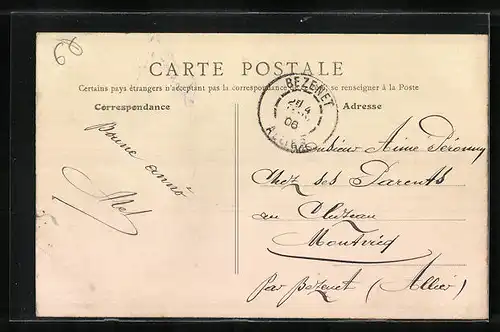 CARTE POSTALE
Certains pays étrangers n'acceptant pas la correspondance se renseigner à la Poste
Correspondance
Adresse
BEZENET
06
ALLIER
Bonne année
Monsieur Aimé
Chez ses Parents
au Cluzeau
Montvicq
par Bézenet (Allier)